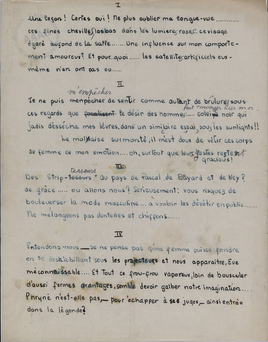 I
Une leçon! Certes oui! Ne plus oublier ma longue-vue .......
ces fines chevilles, là-bas dans les lumières roses; ce visage
égaré autour de la salle.... Une influence sur mon comporte-
ment amoureux? Et pour quoi..... les satellites artificiels eux-
même n'en ont pas eu....
II
m'empêcher
Je ne puis de sentir comme autant de brûlures, sous
ces regards que le désir des hommes...... noir qui
jadis dessécha mes lèvres, dans un similaire essai, sous les sunlights!!
Le malaise surmonté, il m'est doux de vêtir ces corps
de femme de mon émotion... oh, surtout que leurs gestes restent
gracieux!
III
Des Strip-teaseurs au pays de Pascal de Bayard et de Ney?
de grâce..... où allons nous? Sérieusement: vous risquez de
bouleverser la mode masculine...... à vouloir les dévêtir en public...
Ne mélangeons pas dentelles et chiffons.....
IV
Entendons-nous..... Je ne pense pas qu'une femme puisse perdre
en te déshabillant sous les projecteurs et nous apparaître, Eve
méconnaissable..... Et tout ce frou-frou vaporeux, loin de bousculer
d'aussi fermes avantages, semble devoir galber notre imagination....
Phryné n'est-elle pas, pour échapper à ses juges, ainsi entrée
dans la légende?